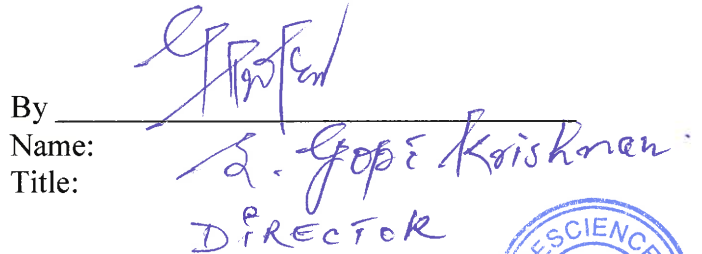 By
Name: S. Gopi Krishnan
Title: DIRECTOR
ESCIENC